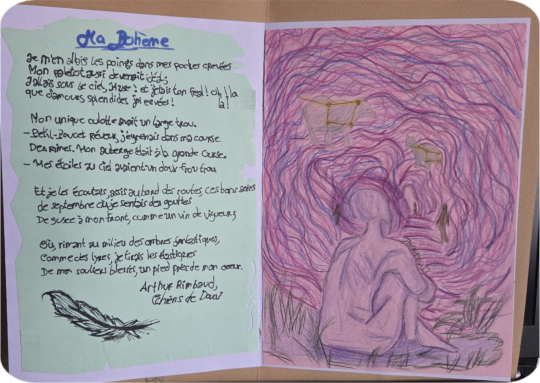 Ma Bohème
Je m'en allais les poings dans mes poches crevées
Mon paletot aussi devenait idéal,
J'allais sous le ciel, Muse ! et j'étais ton féal ! oh là là
que d'amours splendides j'ai rêvées !
Mon unique culotte avait un large trou.
- Petit-Poucet rêveur, j'égrenais dans ma course
Des rimes. Mon auberge était à la Grande Ourse.
- Mes étoiles au ciel avaient un doux frou-frou
Et je les écoutais, assis au bord des routes, ces bons soirs
de septembre où je sentais des gouttes
De rosée à mon front, comme un vin de vigueur,
Où, rimant au milieu des ombres fantastiques,
Comme des lyres, je tirais les élastiques
De mes souliers blessés, un pied près de mon coeur.
Arthur Rimbaud,
Cahiers de Douai